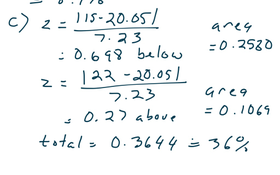 c) z = |115-20.05|/7.23 area = 0.2580
= 0.698 below
z = |122-20.05|/7.23 area = 0.1064
= 0.27 above
total = 0.3644 ≐ 36%